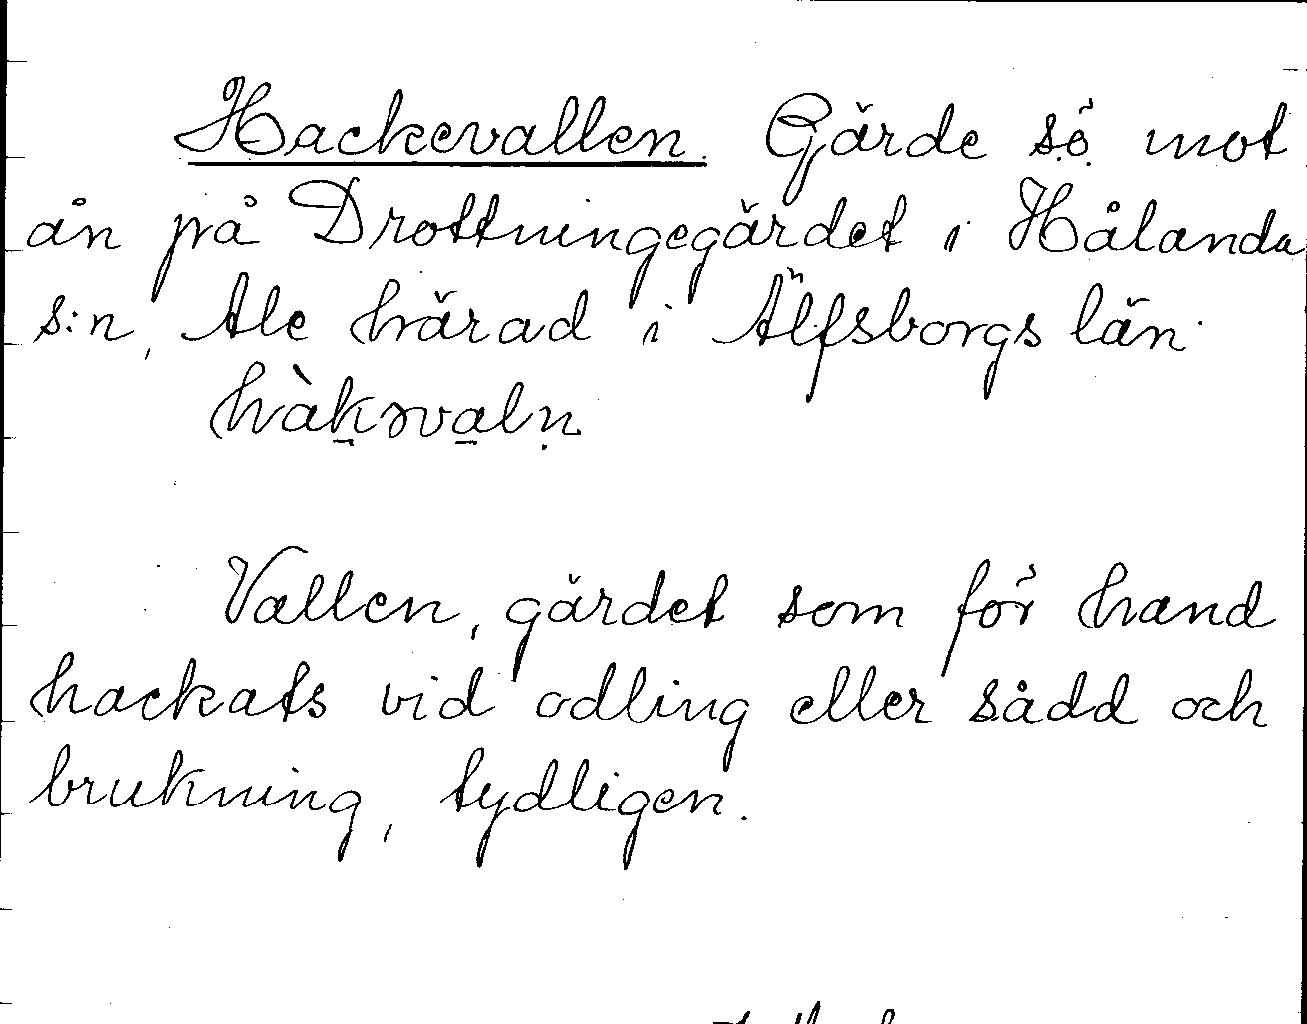 Hackevallen. Gärde s.ö. mot
ån på Drottninggegärdet i Hålanda
s:n, Ale härad i Älfsborgs län.
hàk̠əva̠lṇ

Vallen, gärdet som för hand
hackats vid odling eller sådd och
brukning, tydligen.